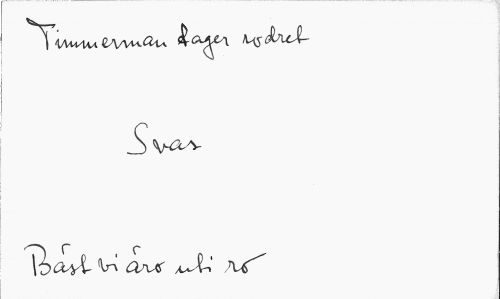 Timmerman tager rodret
Svar
Bäst vi äro uti ro